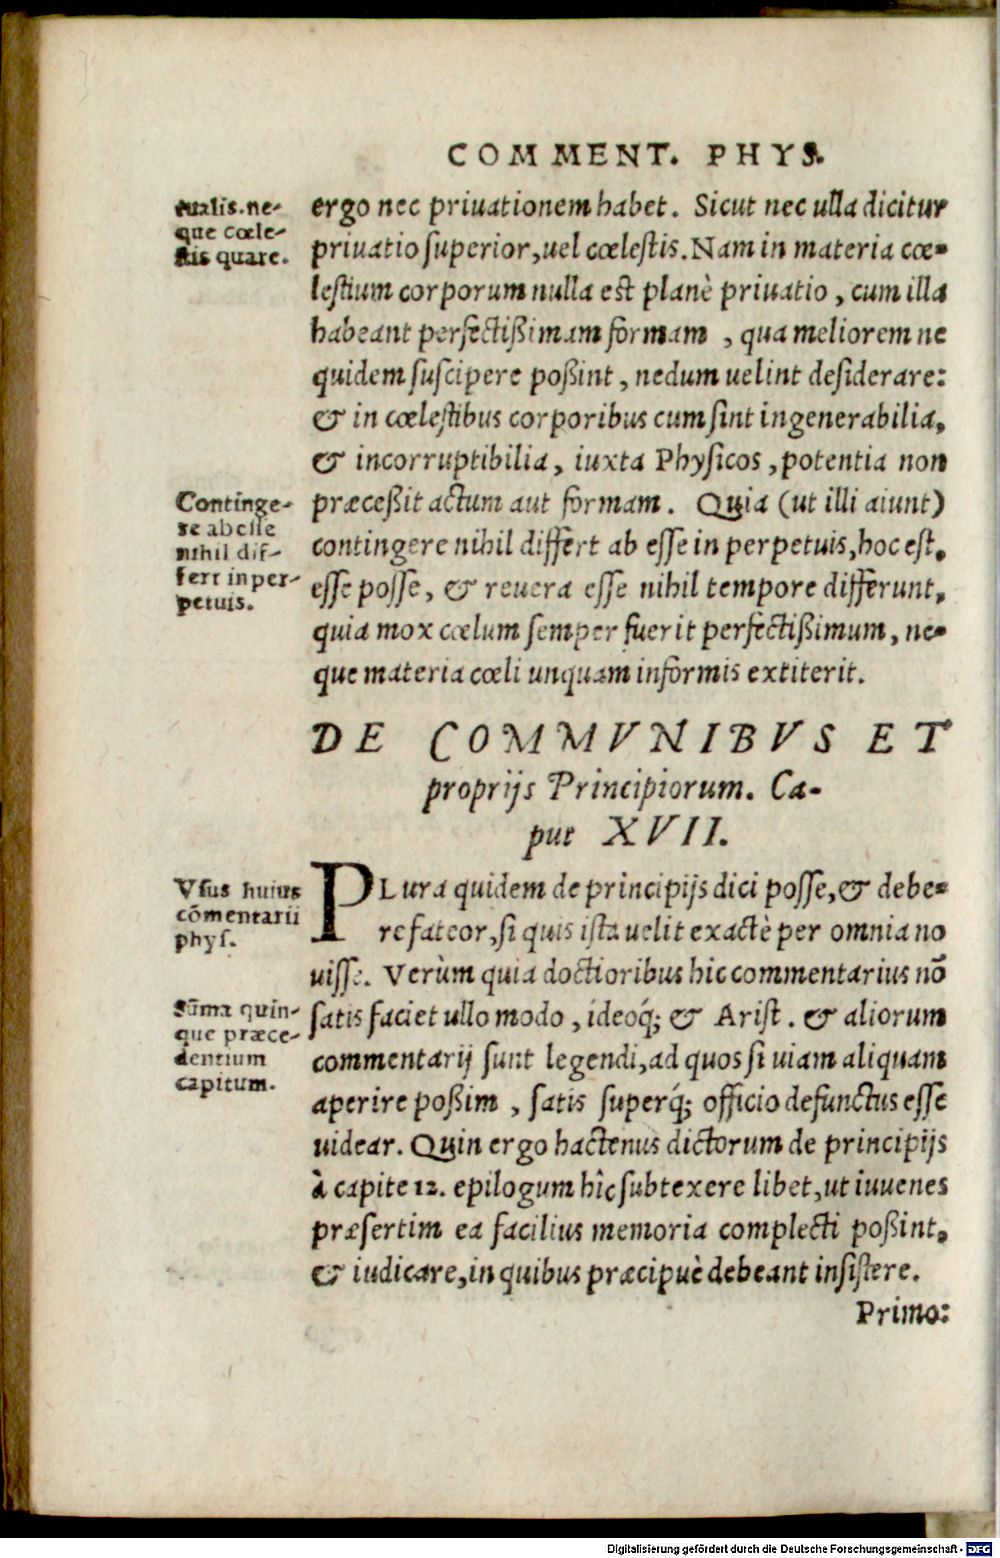 COMMENT. PHYS.
tualis. ne-
que cœle-
stis quare.
ergo nec priuationem habet. Sicut nec ulla dicitur
priuatio superior, uel cœlestis. Nam in materia cœ-
lestium corporum nulla est planè priuatio, cum illa
habeant perfectißimam formam, qua meliorem ne
quidem suscipere poßint, nedum uelint desiderare:
& in cœlestibus corporibus cum sint ingenerabilia,
& incorruptibilia, iuxta Physicos, potentia non
Continge-
re ab esse
nihil dif-
fert in per-
petuis.
præceßit actum aut formam. Quia (ut illi aiunt)
contingere nihil differt ab esse in perpetuis, hoc est,
esse posse, & reuera esse nihil tempore differunt,
quia mox cœlum semper fuerit perfectißimum, ne-
que materia cœli unquam informis extiterit.
DE COMMVNIBVS ET
proprijs Principiorum. Ca-
put XVII.
Vsus huius
cōmentarii
phys.
PLura quidem de principijs dici posse, & debe-
re fateor, si quis ista uelit exactè per omnia no
uisse. Verùm quia doctioribus hic commentarius nō
Sūma quin-
que præce-
dentium
capitum.
satis faciet ullo modo, ideoq́; & Arist. & aliorum
commentarij sunt legendi, ad quos si uiam aliquam
aperire poßim, satis superq́; officio defunctus esse
uidear. Quin ergo hactenus dictorum de principijs
à capite 12. epilogum hîc subtexere libet, ut iuuenes
præsertim ea facilius memoria complecti poßint,
& iudicare, in quibus præcipuè debeant insistere.
Primo:
Digitalisierung gefördert durch die Deutsche Forschungsgemeinschaft - DFG